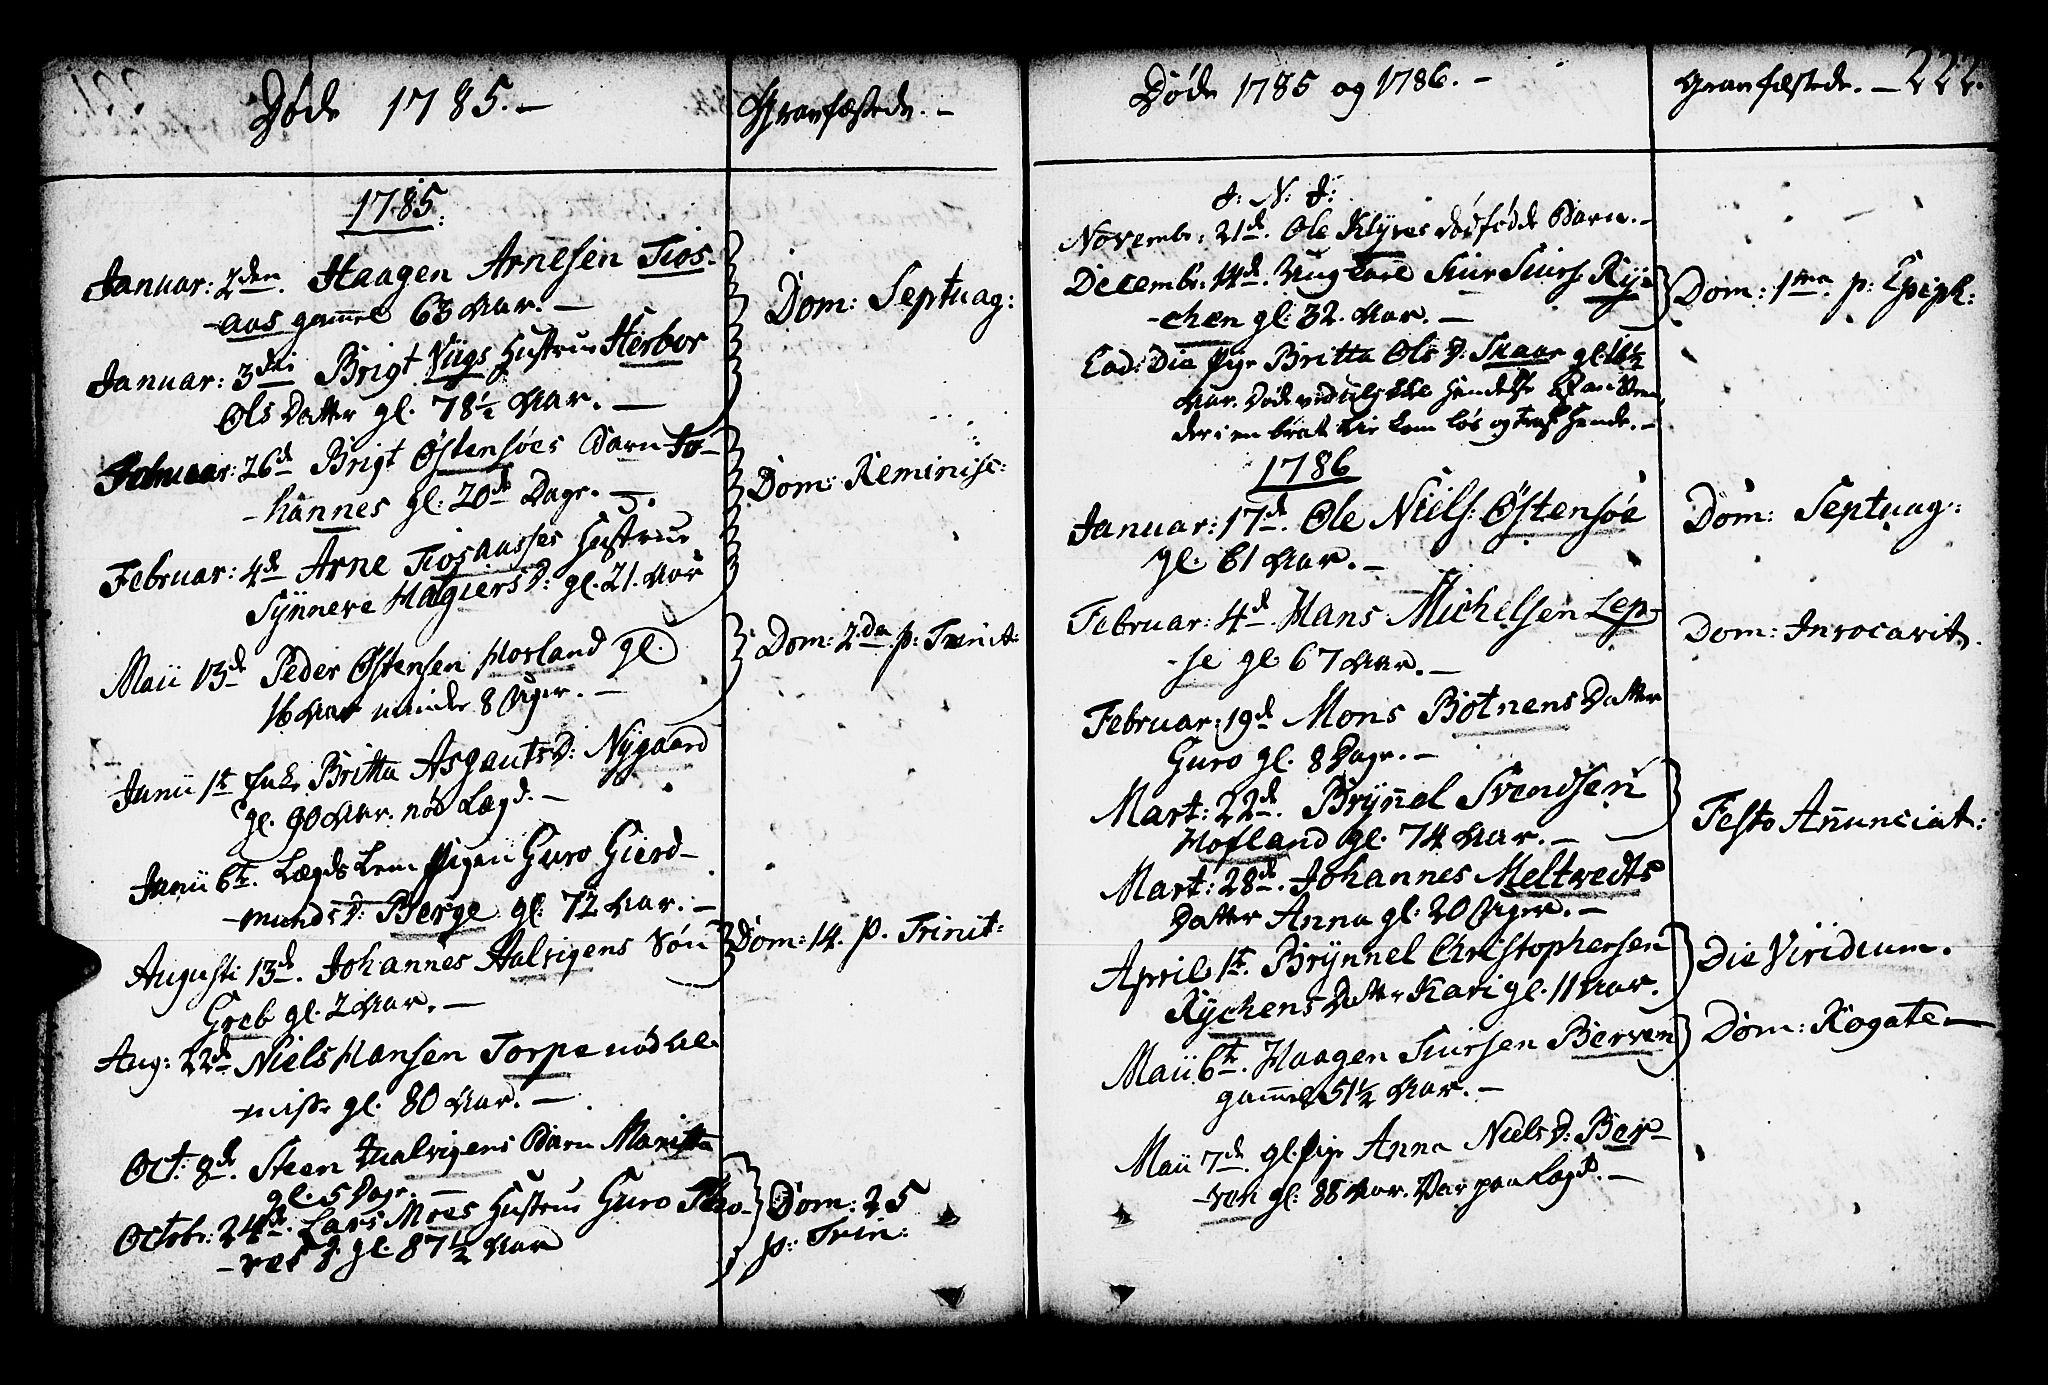 Døde 1785.-
Gravfæstede.-
1785.
Januar: 2den. Haagen Arnesen Tios-
-aas gammel 63 Aar.-
Dom: Septuag:
Januar: 3die Brigt Viigs Hustrue Herbor
Ols Datter gl. 78½ Aar.-
Februar: 26d Brigt Östensöes Barn Jo-
-hannes gl. 20de Dage.-
Dom: Reminisc:
Februar: 4d Arne Tiosaasses Hustrue
Synneve Haagiers D: gl. 21. Aar
Maii 13d Peder Östensen Norland gl.
16 Aar mindre 8 Uger.-
Dom: 2da p: Trinit:
Junii 1t Enke Britta Asgauts D: Nygaard
gl. 90 Aar. nød Lægd.-
Junii 6t. Lægds Lem Pigen Guro Gierd-
-munds D: Berge gl: 72 Aar.-
Augusti 13d. Johannes Halvigens Søn
Greb gl. 2 Aar.-
Dom: 14. p. Trinit:
Aug: 22d Niels Hansen Torpe nødle-
-misse gl. 80 Aar.-
Oct: 8d. Steen Hualvigens Barn Maritta
gl. 5 Dage.-
Octobr: 24d. Lars Moes Hustrue Guro Tho-
-res D gl. 87½ Aar
Dom: 25
p: Trin:
Døde 1785 og 1786.-
Gravfæstede.- 222.
J: N: J:
Novembr: 21d. Ole Klyves dødfødde Barn.-
Decembr: 14d. Ung Karl Siur Siurs: Ryc-
-chen gl: 32. Aar.-
Dom: 1ma p: Epiph:
Ead: Die Pige Britta Ols D: Skaar gl. 16½
Aar. Døde ved ulykke Hendelse
der i en brat Lie kom løs og traf hende.-
1786
Januar: 17d. Ole Niels: Östensöe
gl. 61 Aar.-
Dom: Septuag:
Februar: 4d. Hans Michelsen Lep-
-se gl 67 Aar.-
Dom: Invocavit.
Februar: 19d Mons Botnens Datter
Guro gl. 8 Dage.-
Mart: 22d. Brynnel Svendsen
Hofland gl: 74 Aar.-
Festo Anunciat:
Mart: 28d. Johannes Meltvedts
Datter Anna gl. 20 Uger.-
April 1t. Brynnel Christophersen
Rychens Datter Kari gl. 11 Aar.
Die Viridium.
Maii 6t. Haagen Siursen Berven
gammel 51½ Aar.-
Dom: Rogate-
Maii 7d. gl. Pige Anna Niels D: Ber-
-ven gl: 88 Aar. Var paa Lægd.-